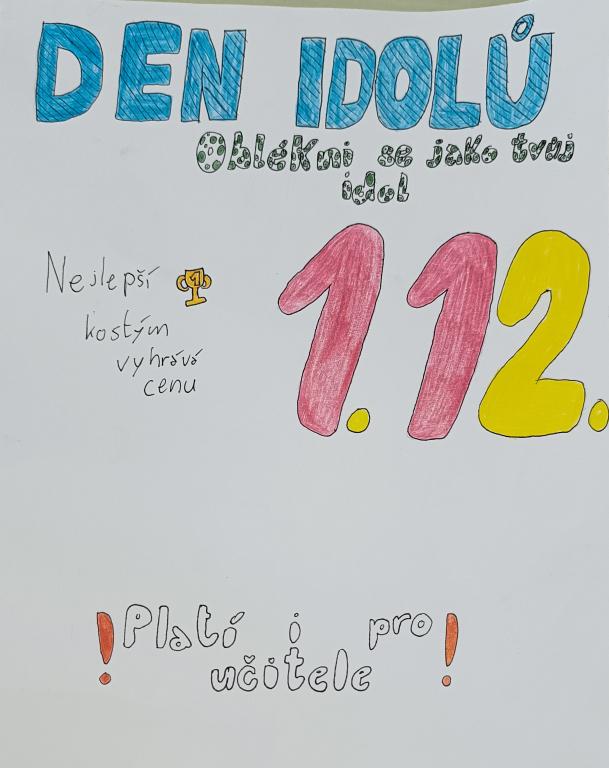 DEN IDOLŮ
Oblékni se jako tvůj
idol
Nejlepší
1
kostým
vyhrává
cenu
1. 12.
! Platí i pro !
učitele